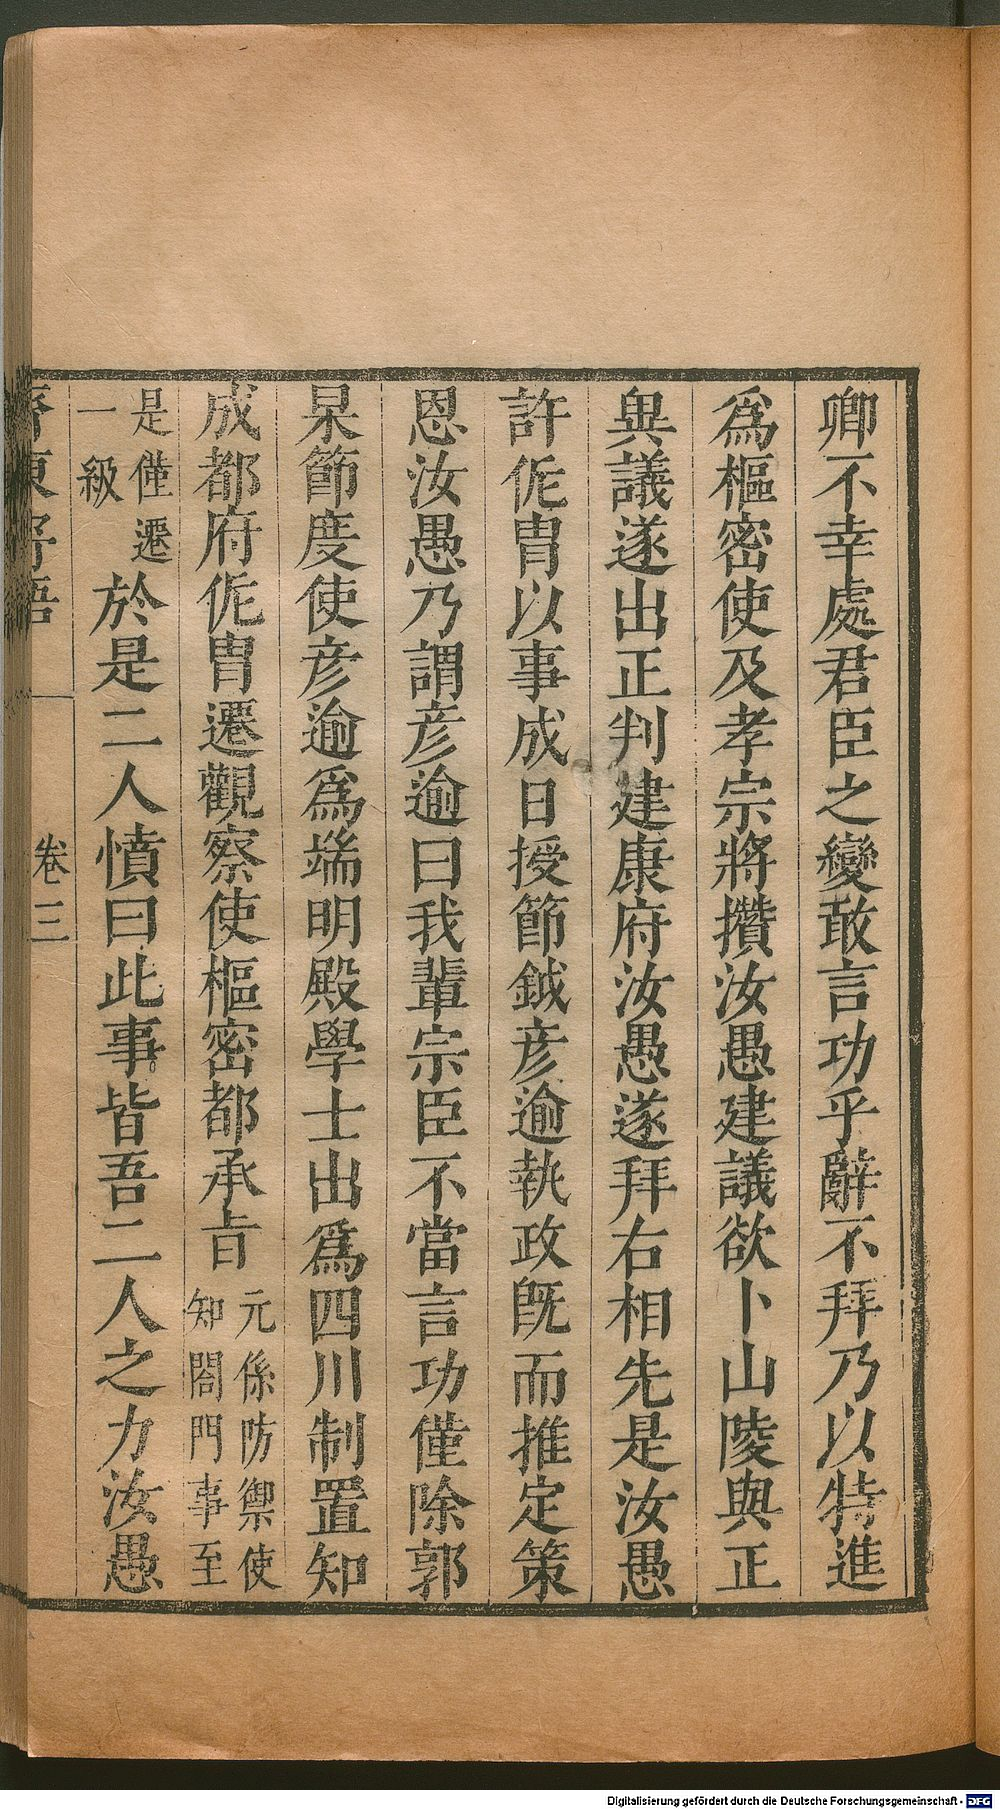 卿不幸處君臣之變敢言功乎辭不拜乃以特進
爲樞密使及孝宗將攢汝愚建議欲卜山陵與正
異議遂出正判建康府汝愚遂拜右相先是汝愚
許侂冑以事成日授節鉞彥逾執政旣而推定策
恩汝愚乃謂彥逾曰我輩宗臣不當言功僅除郭
杲節度使彥逾爲端明殿學士出爲四川制置知
成都府侂冑遷觀察使樞密都承旨元係防禦使
知閤門事至
是僅遷
一級
於是二人憤曰此事皆吾二人之力汝愚
齊東野語
卷三
Digitalisierung gefördert durch die Deutsche Forschungsgemeinschaft - DFG